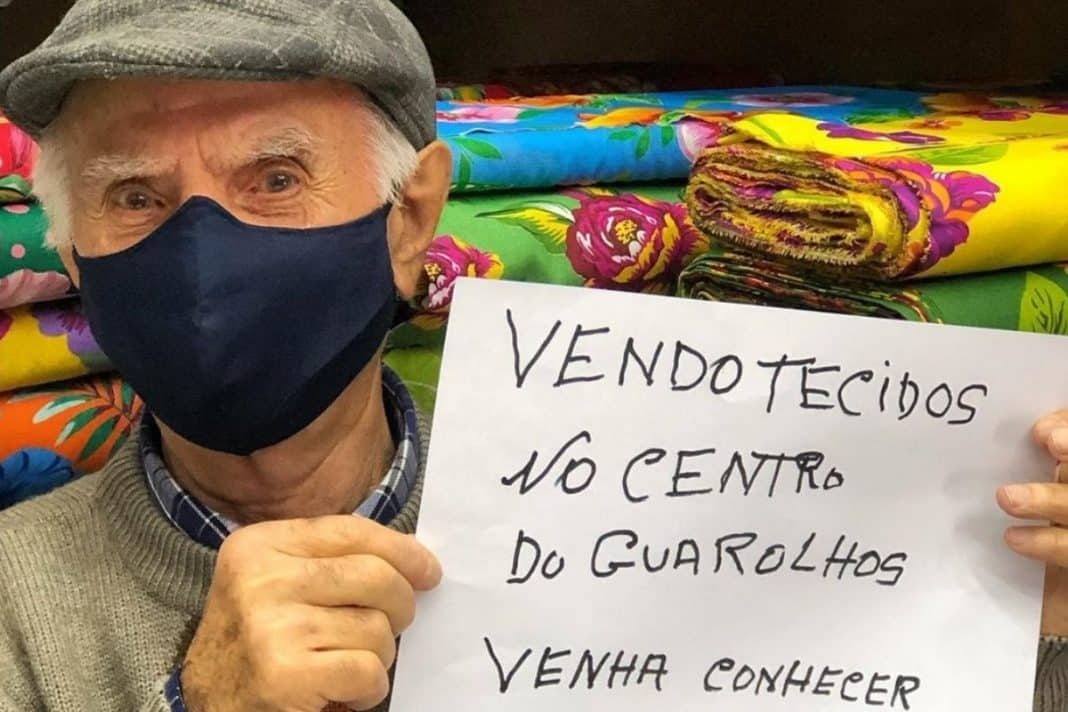 VENDO TECIDOS
NO CENTRO
DO GUAROLHOS
VENHA CONHECER